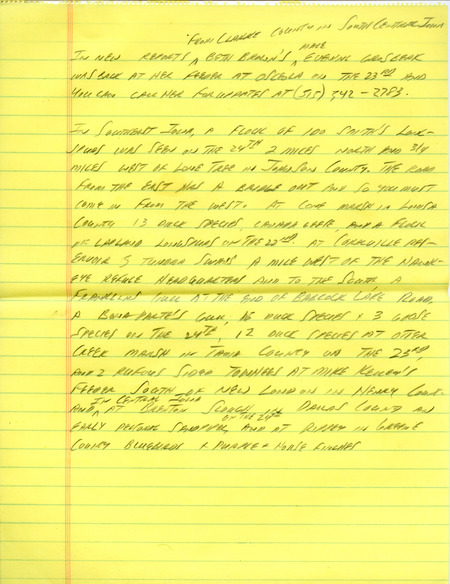 From Clarke County in South Central Iowa
In new reports, Beth Brown's male Evening Grosbeak
was back at her feeder at Osceola on the 23rd and
you can call her for updates at (515) 342-2783.
In Southeast Iowa, a flock of 100 Smith's Long-
spurs was seen on the 24th 2 miles north and 3/4
miles west of Lone Tree in Johnson County. The road
from the east has a bridge out and so you must
come in from the west. At Cone Marsh in Louisa
County 13 duck species, Canada geese, and a flock
of Lapland Longspurs on the 22nd. At Coralville Res-
ervoir 3 Tundra Swans a mile west of the Hawk-
eye Refuge Headquarters and to the south, a
Franklin's Gull at the end of Babcock Lake Road,
a Bonaparte's Gull, 16 duck species & 3 grebe
species on the 24th, 12 duck species at Otter
Creek Marsh in Tama County on the 23rd
and 2 Rufous Sided Towhees at Mike
feeder south of New London in Henry Coun-
and in Central Iowa at Brenton Slough in Dallas County an
early Pectoral Sandpiper on the 24th and at Rippey in Greene
County Bluebirds & Purple & House Finches